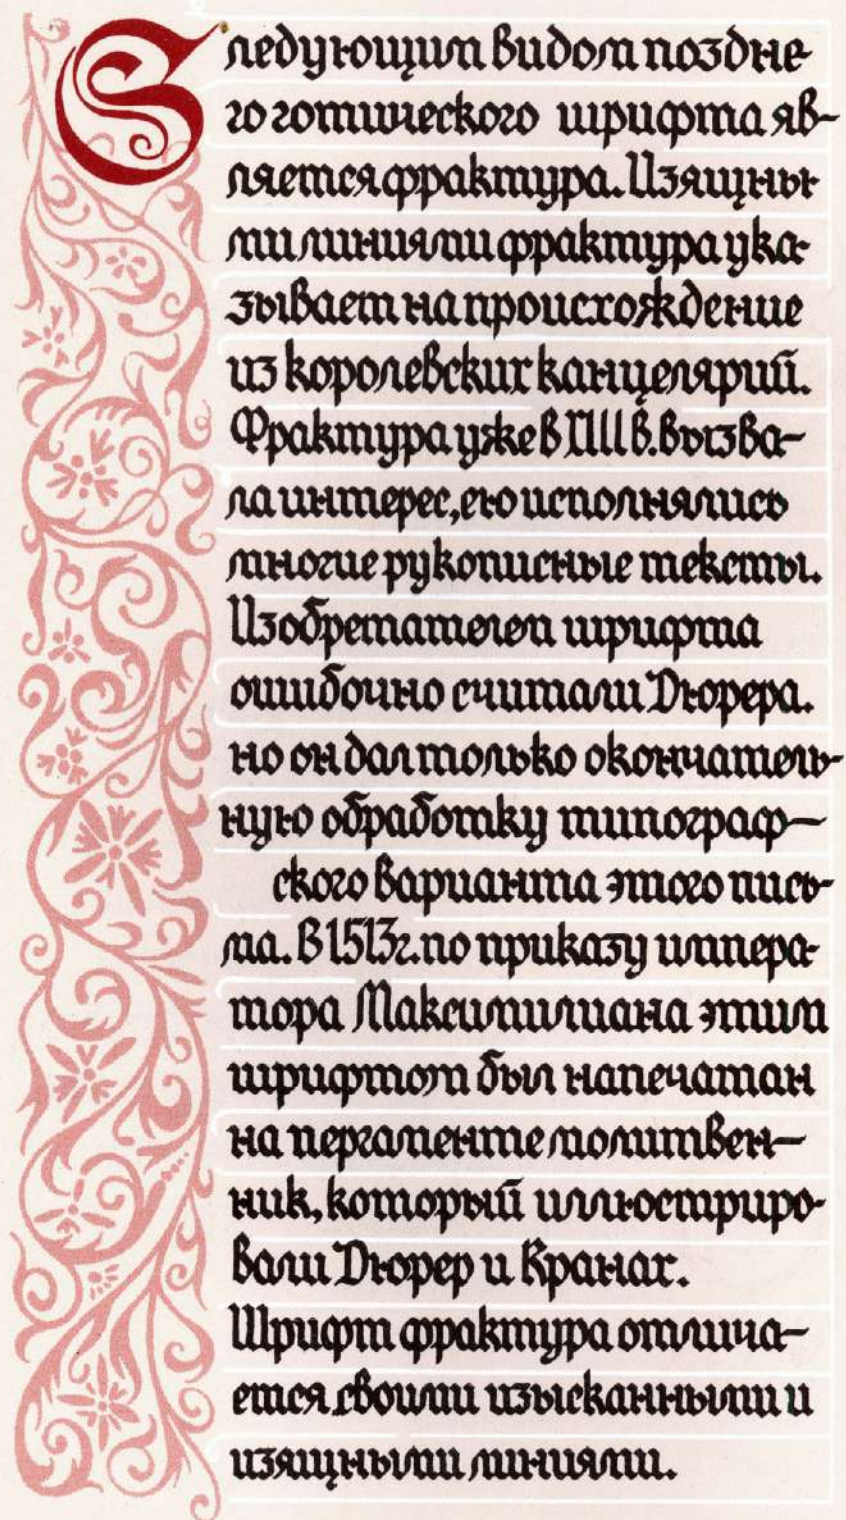 Следующим видом поздне-
го готического шрифта яв-
ляется фрактура. Изящны-
ми линиями фрактура ука-
зывает на происхождение
из королевских канцелярий.
Фрактура уже в XIII в. вызва-
ла интерес, ею исполнялись
многие рукописные тексты.
Изобретателем шрифта
ошибочно считали Дюрера.
но он дал только окончатель-
ную обработку типограф-
ского варианта этого пись-
ма. В 1513г. по приказу импера-
тора Максимилиана этим
шрифтом был напечатан
на пергаменте молитвен-
ник, который иллюстриро-
вали Дюрер и Кранах.
Шрифт фрактура отлича-
ется своими изысканными и
изящными линиями.